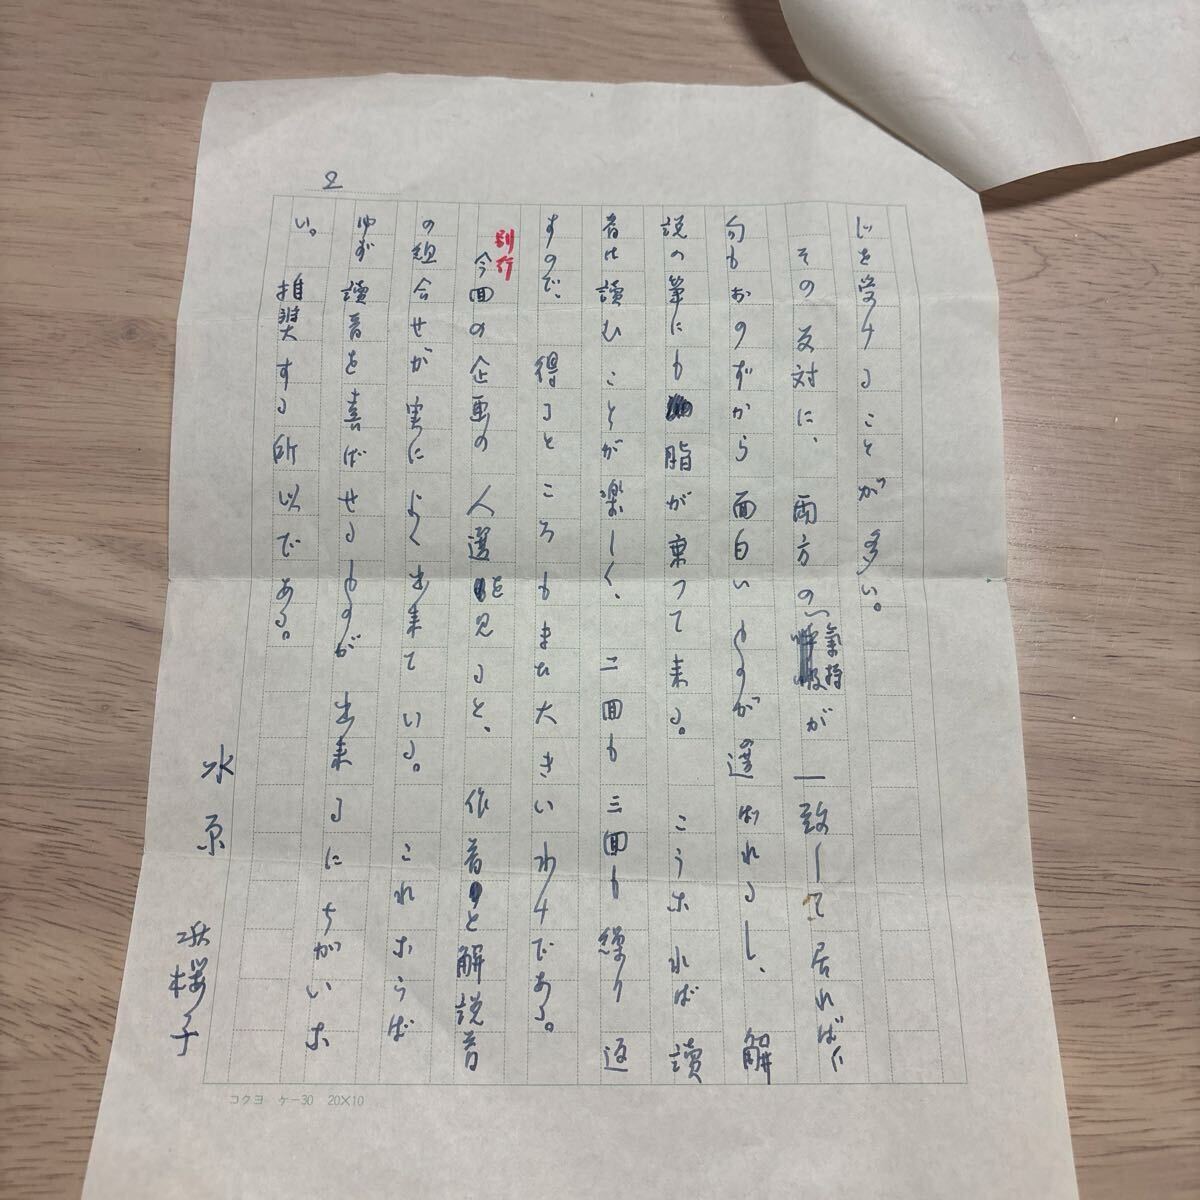 じを受けることが多い。
その反対に、両方の氣持が一致して居れば、
句もおのずから面白いものが選ばれるし、解
説の筆にも脂が乗って来る。こうなれば讀
者は讀むことが楽しく、二回も三回も繰り返
すので、得るところもまた大きいわけである。
別行
今回の企画の人選を見ると、作者と解説者
の組合せが実によく出来ている。これならば
ゆず讀者を喜ばせるものが出来るにちがいな
い。推奨する所以である。
水原 秋桜子
2
コクヨ ケー30 20×10